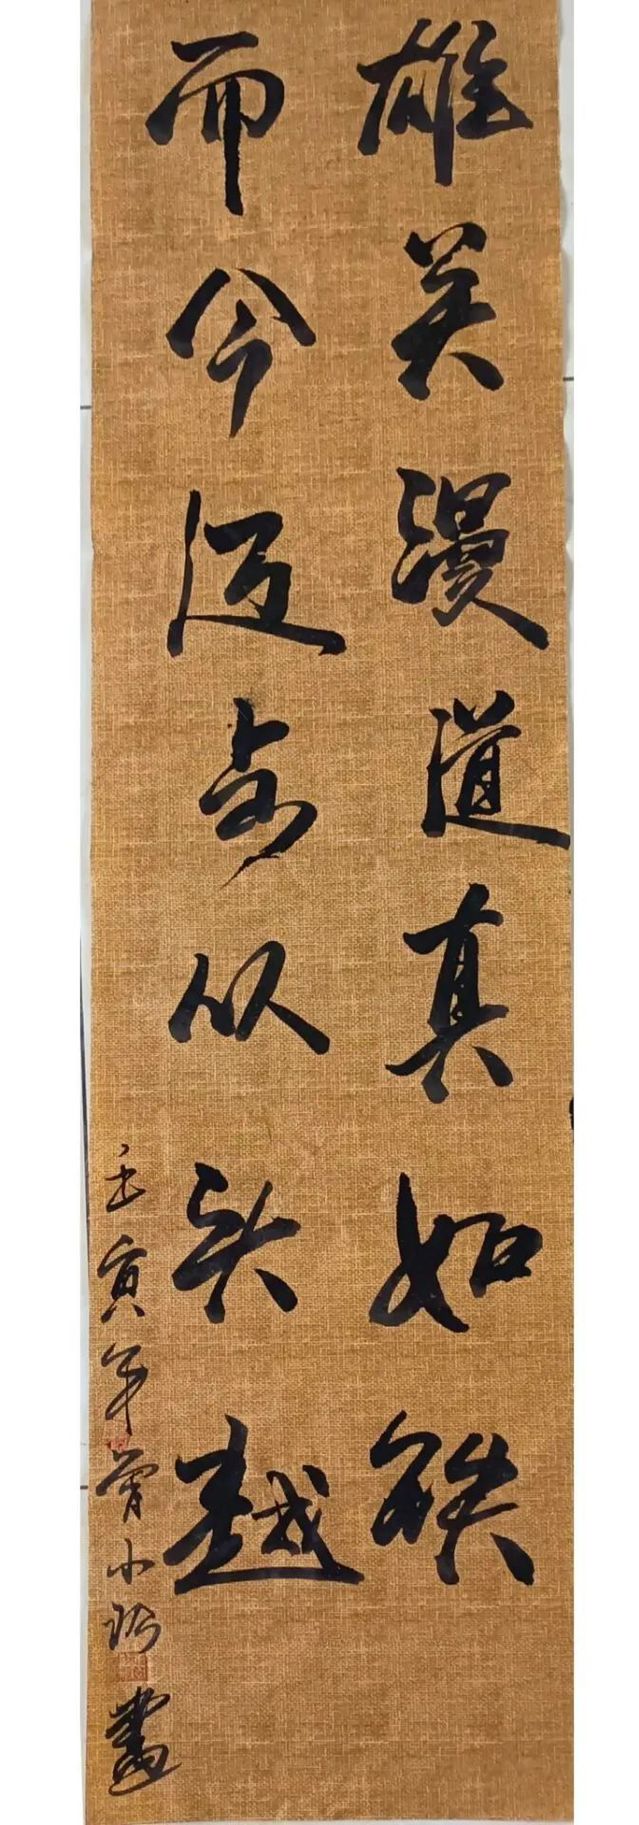 雄关漫道真如铁
而今迈步从头越
壬寅年曾小